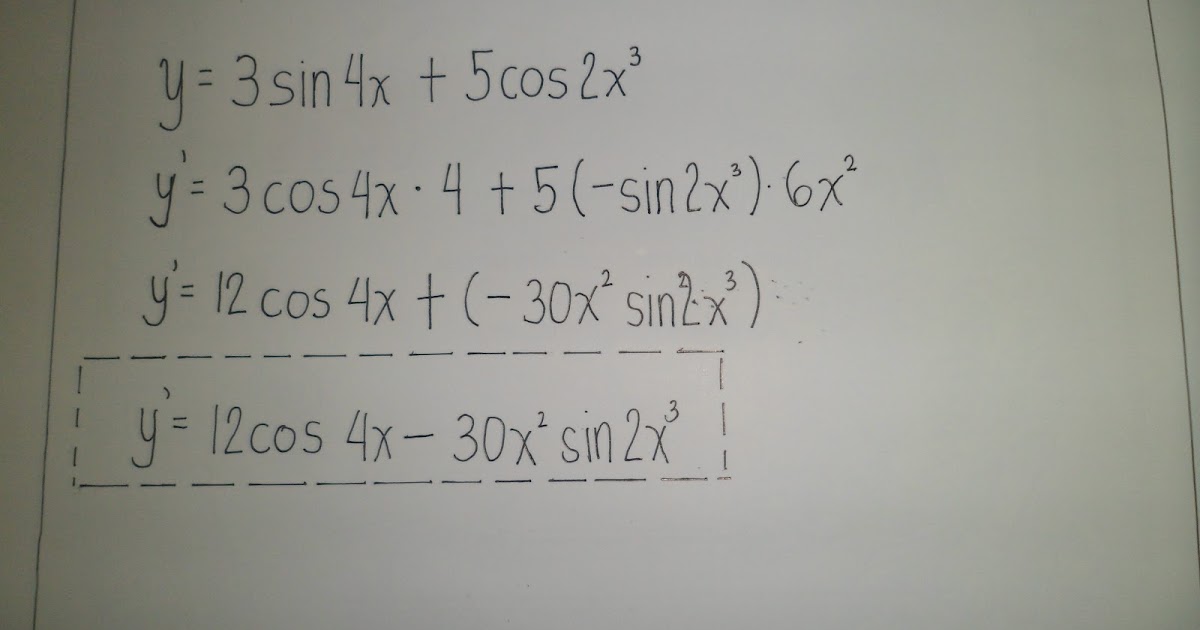 y = 3 sin 4x + 5cos 2x³
y' = 3 cos 4x · 4 + 5 (-sin 2x³) · 6x²
y' = 12 cos 4x + (-30x² sin 2x³)
y' = 12cos 4x - 30x² sin 2x³